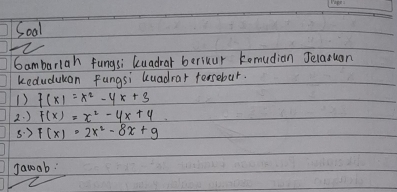 Page:
Soal
Gambarlah fungsi kuadrat berikut kemudian Jelaskan
kedudukan fungsi kuadrat tersebut.
1) f(x) = x² - 4x + 3
2.) f(x) = x² - 4x + 4
3.) f(x) = 2x² - 8x + 9
Jawab :